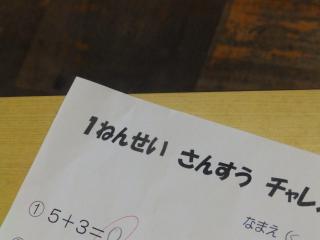 1ねんせい さんすう チャレ
なまえ（
① 5＋3＝